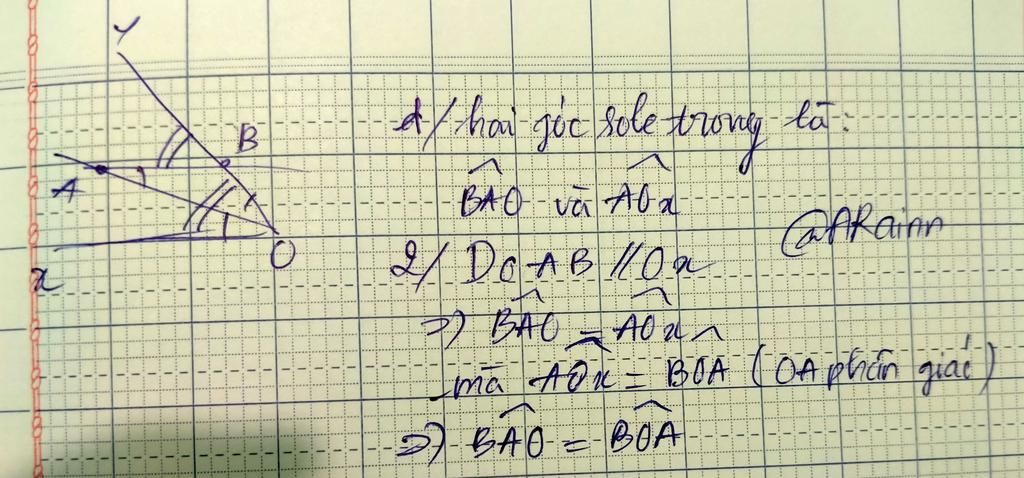 y
B
A
O
x
1/ hai góc sole trong là:
BÂO và AÔx
@ARainn
2/ Do AB // Ox
=> BÂO = AÔx
mà AÔx = BÔA (OA phân giác)
=> BÂO = BÔA